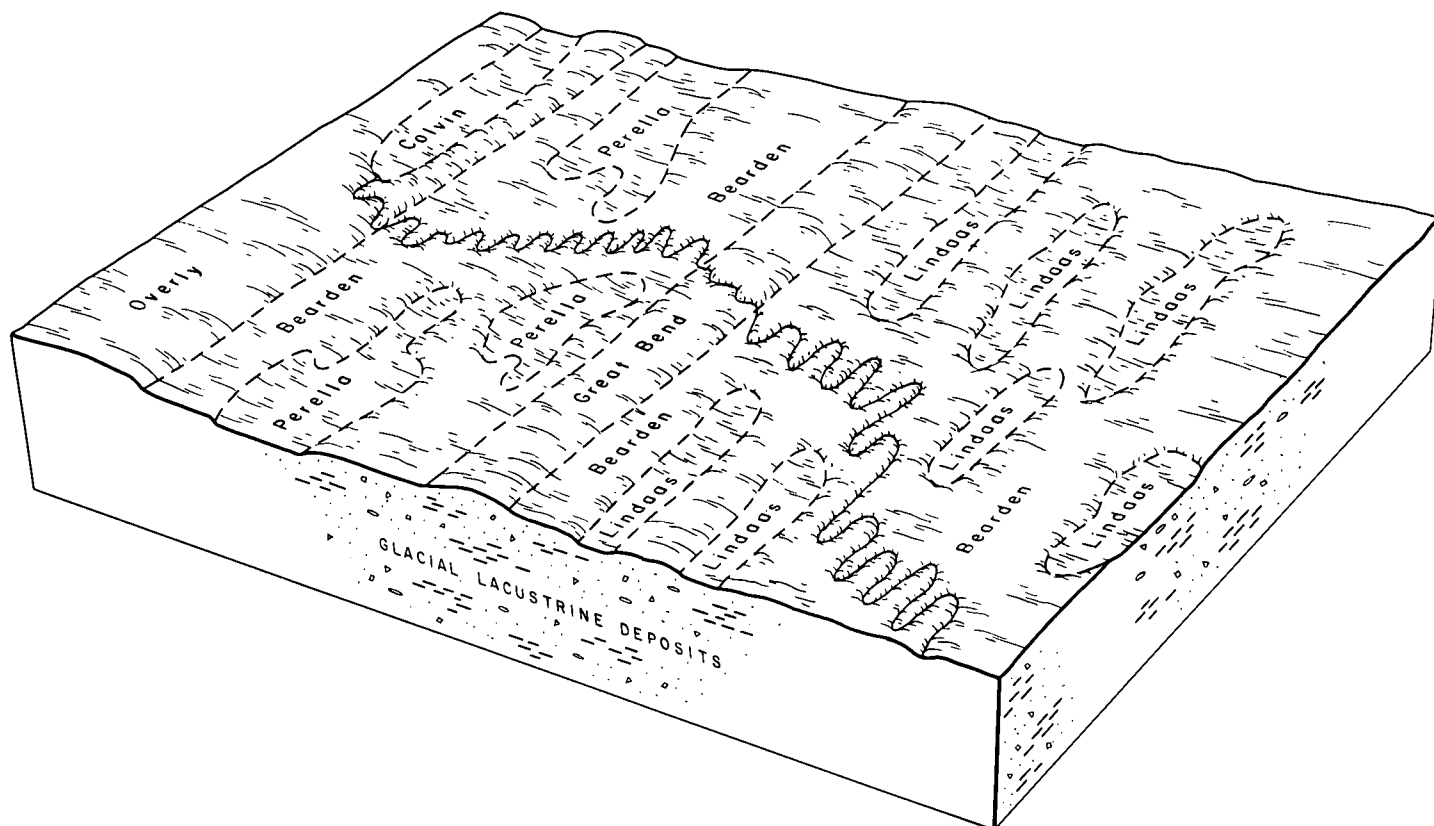 Colvin
Perella
Bearden
Overly
Bearden
Perella
Perella
Great Bend
Bearden
Lindaas
Lindaas
Lindaas
Lindaas
Lindaas
Lindaas
Bearden
Lindaas
GLACIAL LACUSTRINE DEPOSITS